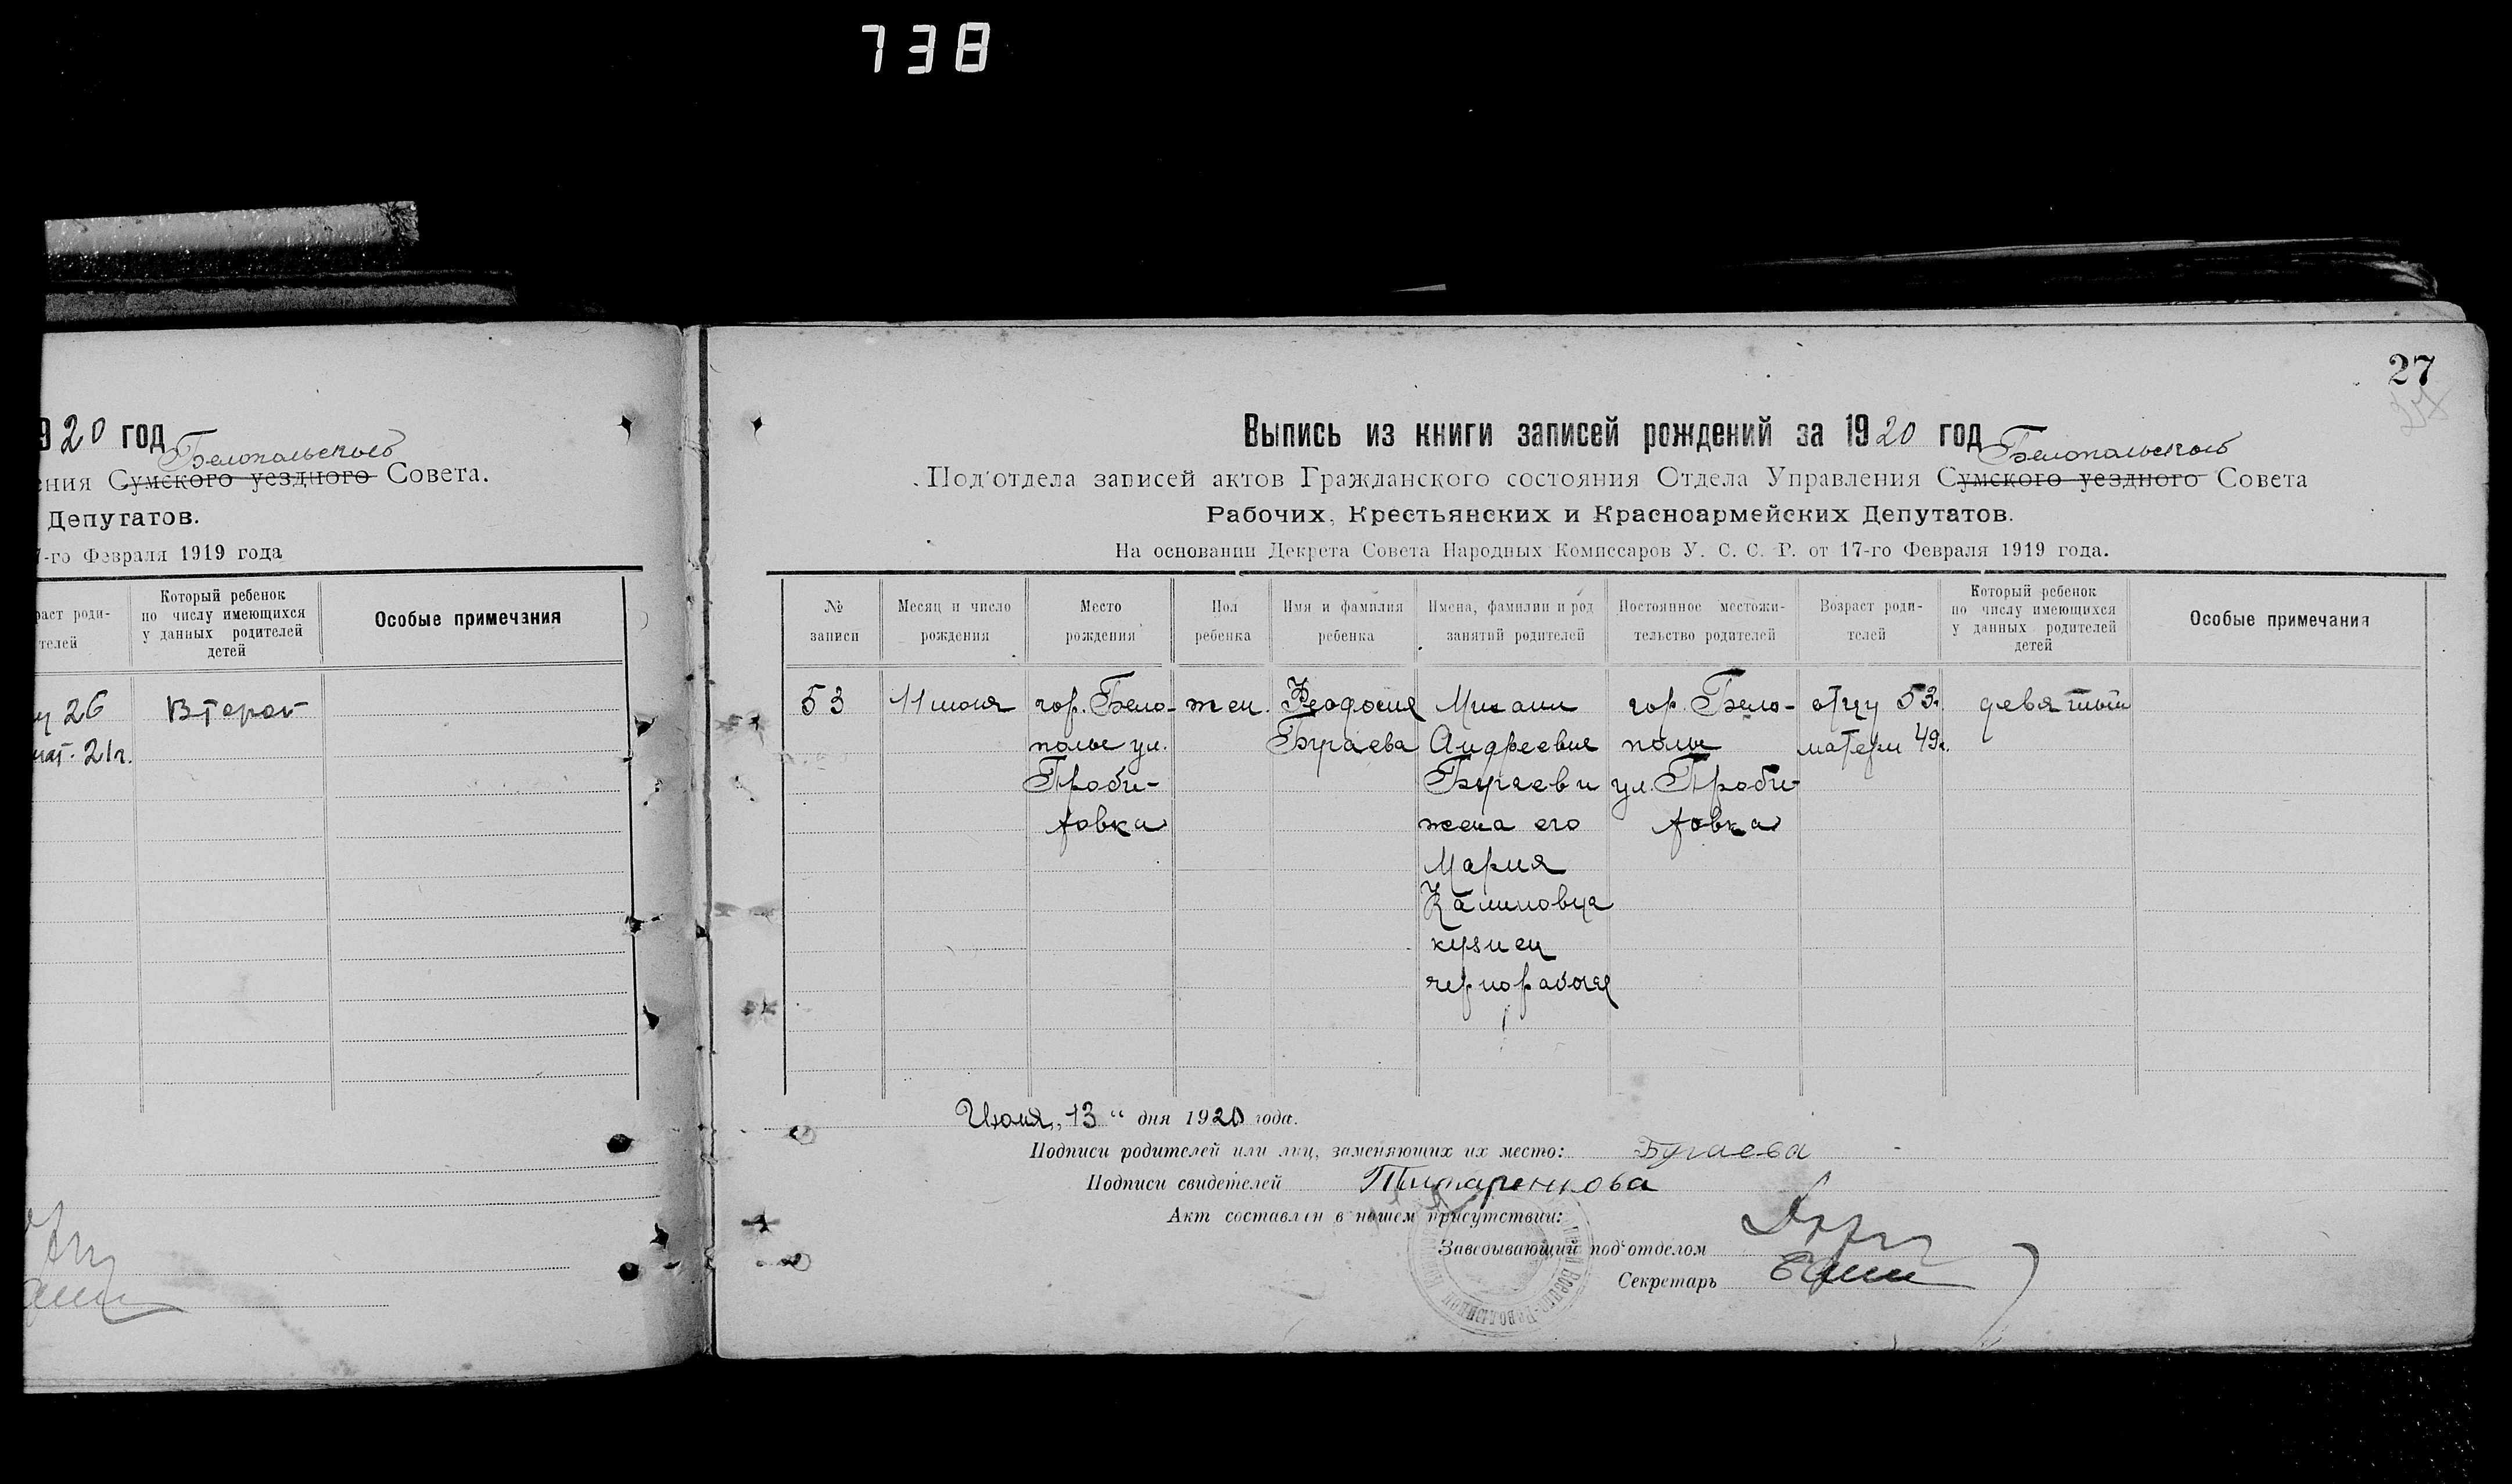 738
920 год
Белопольского
ения Сумского уездного Совета.
Депутатов.
7-го Февраля 1919 года
раст роди-
телей
Который ребенок
по числу имеющихся
у данных родителей
детей
Особые примечания
у 26
мат. 21 г.
Второй
27
Выпись из книги записей рождений за 1920 год
Белопольского
Под'отдела записей актов Гражданского состояния Отдела Управления Сумского уездного Совета
Рабочих, Крестьянских и Красноармейских Депутатов.
На основании Декрета Совета Народных Комиссаров У. С. С. Р. от 17-го Февраля 1919 года.
№
записи
Месяц и число
рождения
Место
рождения
Пол
ребенка
Имя и фамилия
ребенка
Имена, фамилии и род
занятий родителей
Постоянное местожи-
тельство родителей
Возраст роди-
телей
Который ребенок
по числу имеющихся
у данных родителей
детей
Особые примечания
53
11 июля
гор. Бело-
полье ул.
жен.
Феодосия
Бугаева
Михаил
Андреевич
Бугаев и
жена его
Мария
кузнец
чернорабочая
гор. Бело-
полье
отцу 53.
матери 49 г.
девятый
Июля „13“ дня 1920 года.
Подписи родителей или лиц, заменяющих их место: Бугаева
Подписи свидетелей
Акт составлен в нашем присутствии:
Заведывающий под'отделом
Секретарь